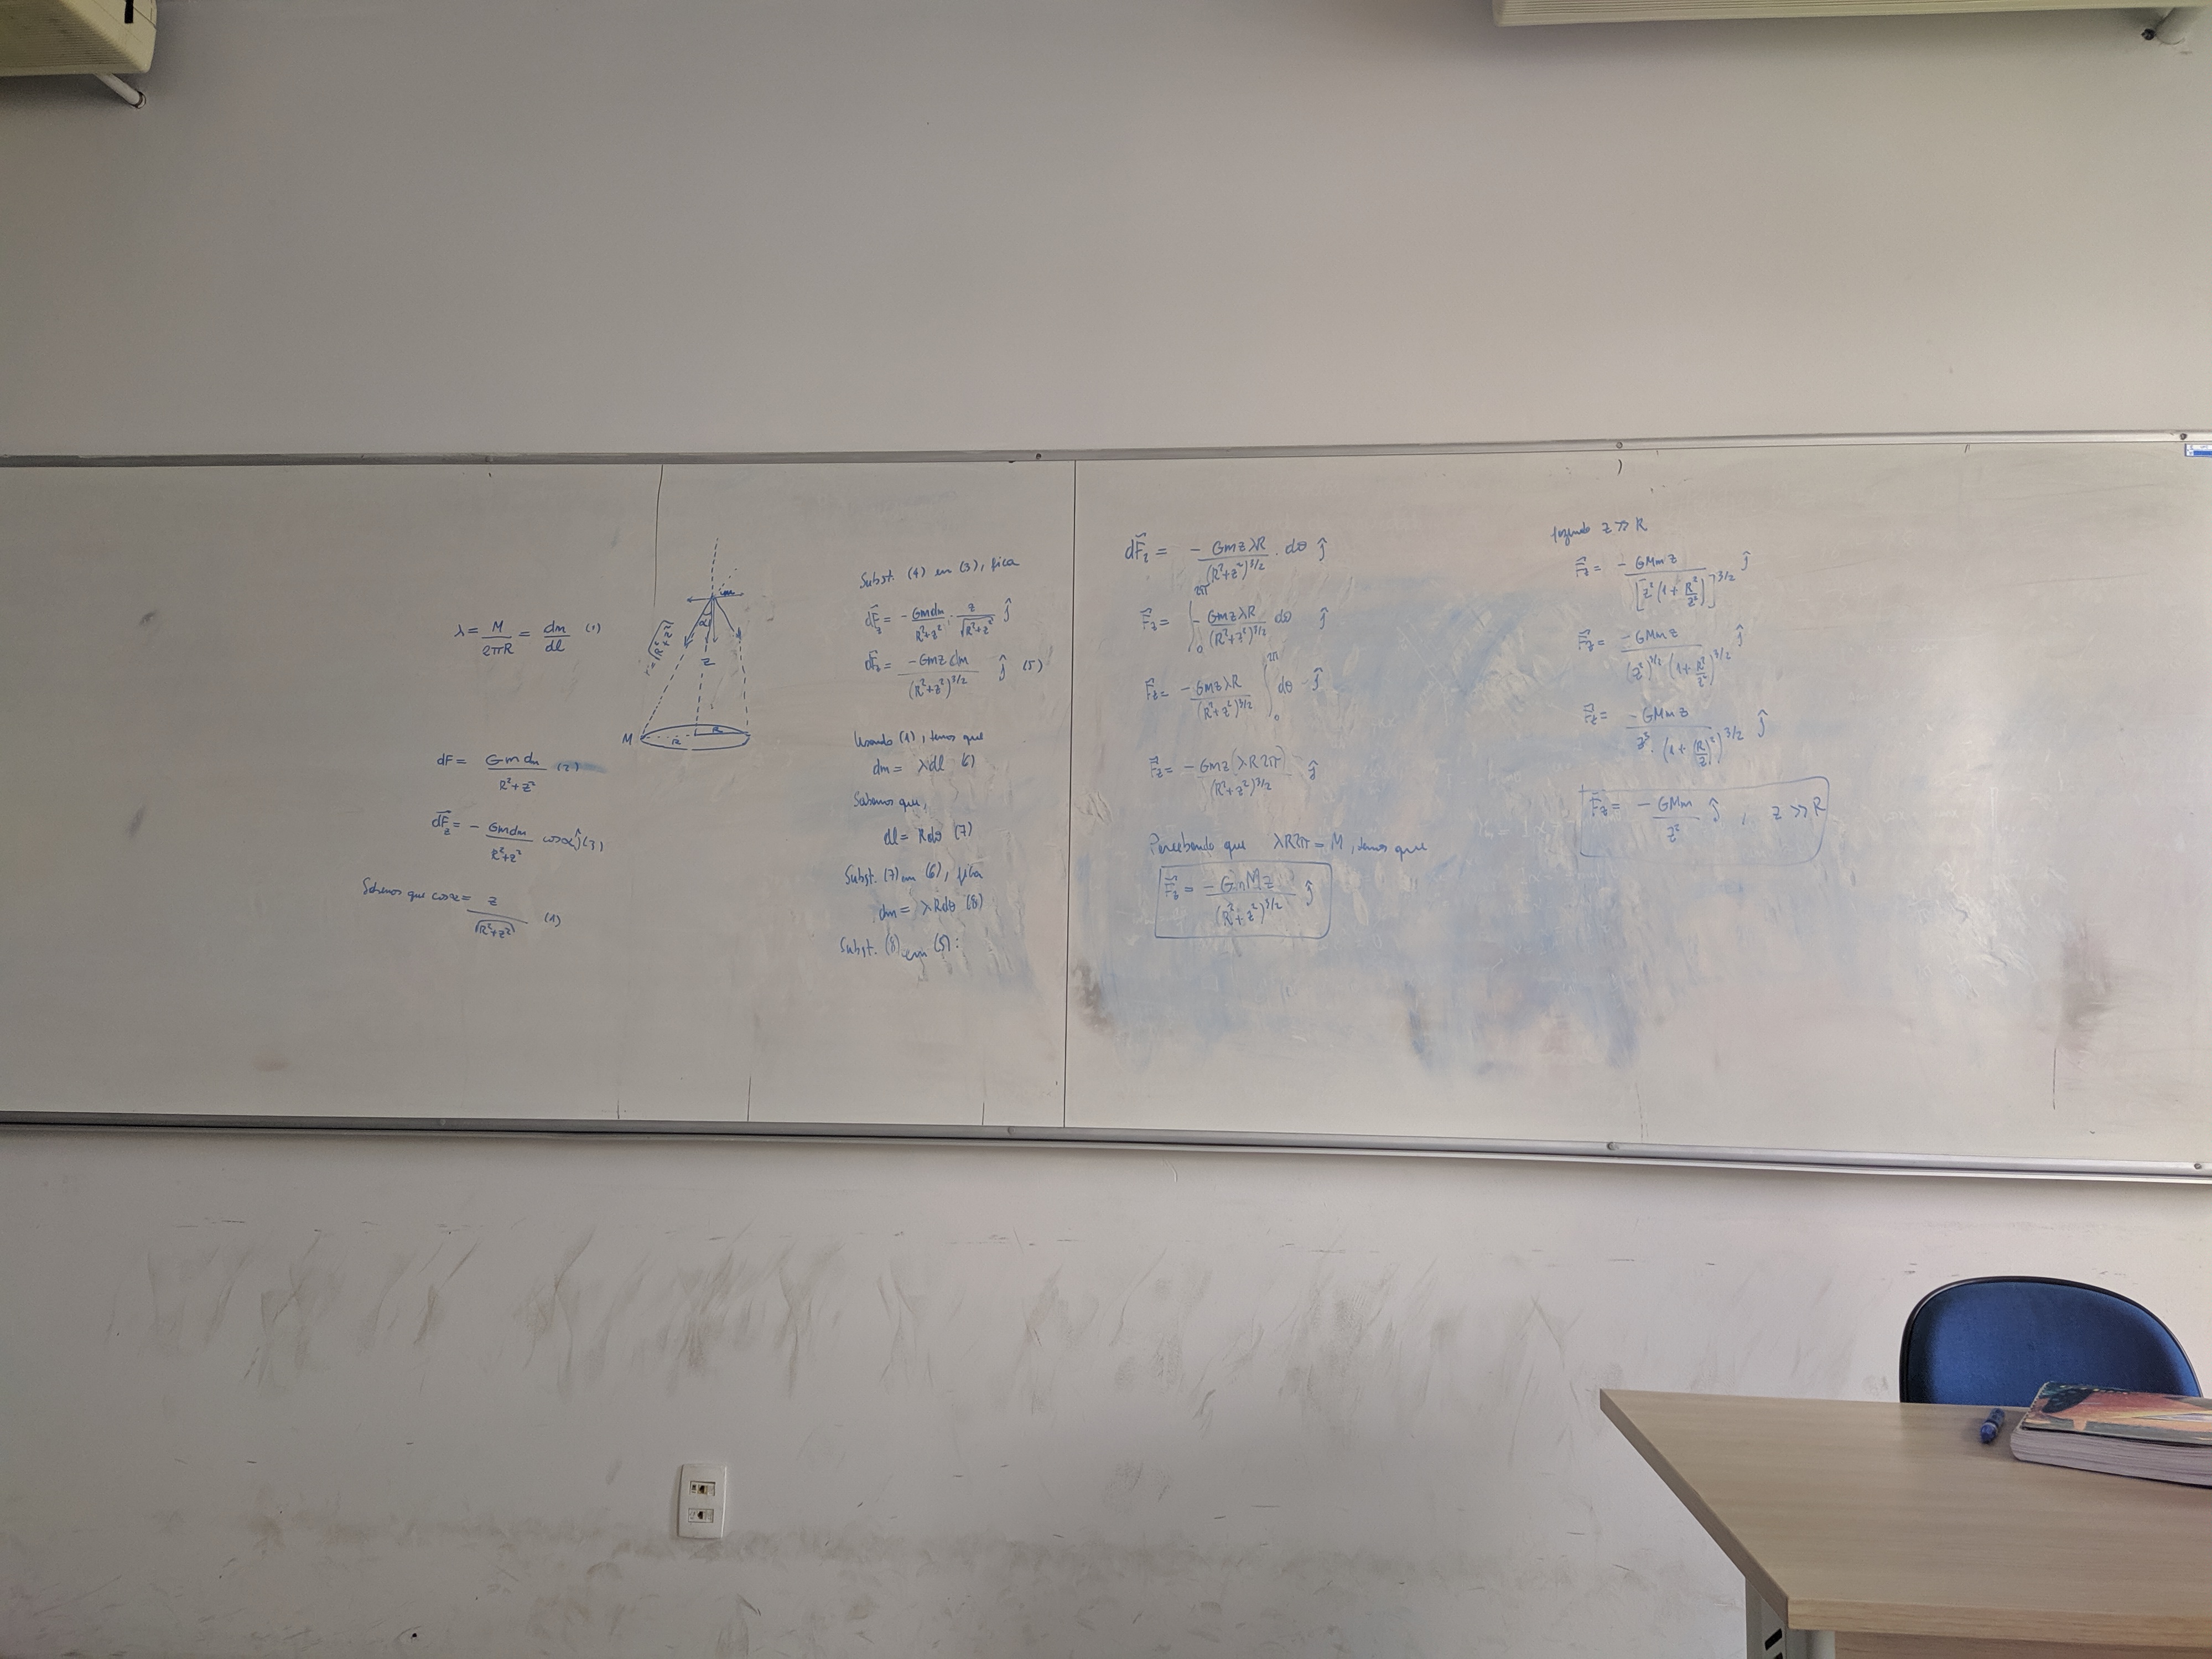 λ = M/2πR = dm/dl (1)
m
α
r=√(R²+z²)
z
M
R
R
dF = Gmdm/R²+z² (2)
dF⃗z = - Gmdm/R²+z² cosα ĵ (3)
Sabemos que cosα = z/√(R²+z²) (4)
Subst. (4) em (3), fica
dF⃗z = - Gmdm/R²+z² · z/√(R²+z²) ĵ
dF⃗z = -Gmz dm/(R²+z²)^3/2 ĵ (5)
Usando (1), temos que
dm = λdl (6)
Sabemos que,
dl = Rdθ (7)
Subst. (7) em (6), fica
dm = λRdθ (8)
Subst. (8) em (5):
dF⃗z = - GmzλR/(R²+z²)^3/2 . dθ ĵ
F⃗z = ∫₀^2π - GmzλR/(R²+z²)^3/2 dθ ĵ
F⃗z = -GmzλR/(R²+z²)^3/2 ∫₀^2π dθ ĵ
F⃗z = -Gmz(λR2π)/(R²+z²)^3/2 ĵ
Percebendo que λR2π = M, temos que
F⃗z = -GmMz/(R²+z²)^3/2 ĵ
fazendo z >> R
F⃗z = -GMmz/[z²(1+R²/z²)]^3/2 ĵ
F⃗z = -GMmz/(z²)^3/2 (1+R²/z²)^3/2 ĵ
F⃗z = -GMmz/z³.(1+(R/z)²)^3/2 ĵ
F⃗z = -GMm/z² ĵ , z >> R